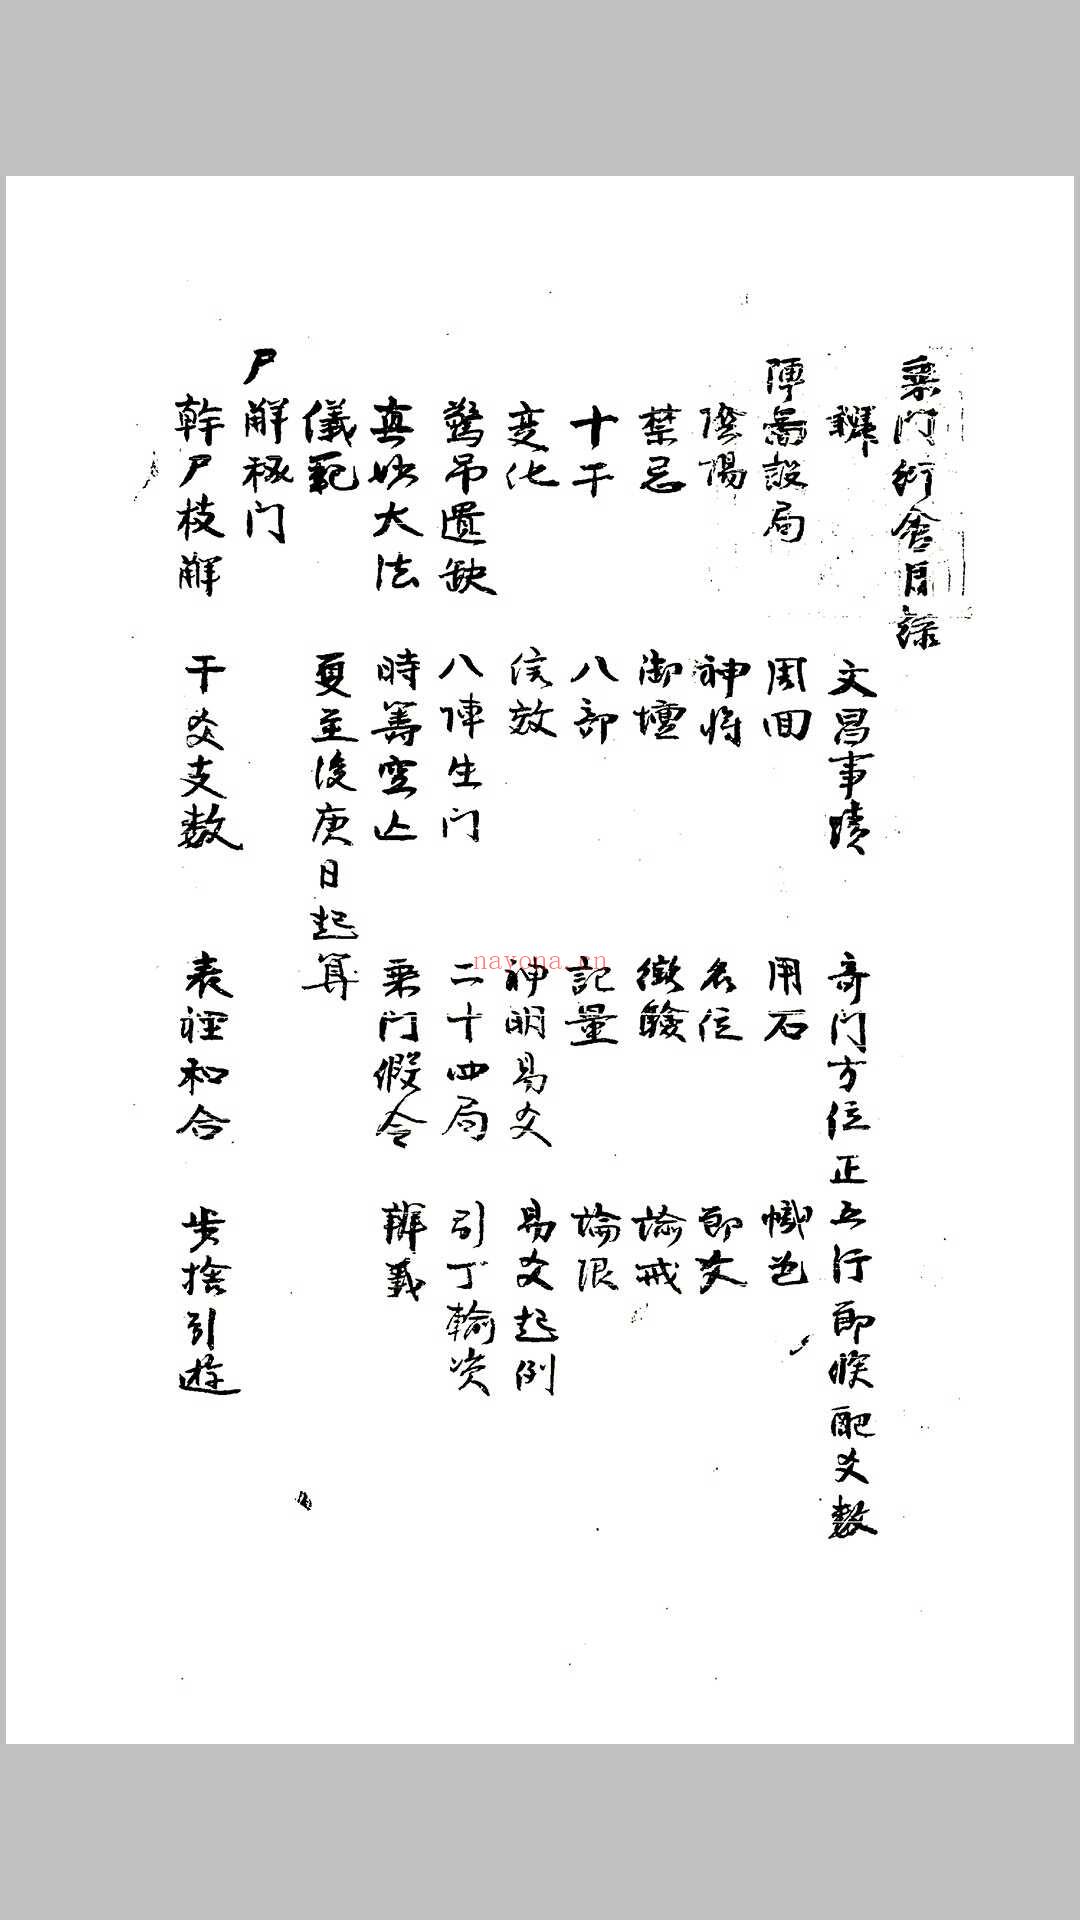 乘门衍舍目録
文昌事蹟 奇门方位正五行節候配爻数
陣啚設局 周囬 用石 幟色
陰陽 神将 名位 節爻
禁忌 御壇 徵驗 諭戒
十干 八部 記量 論限
变化 信效 神明易爻 易爻起例
驚吊遺缺 八陣生门 二十四局 引丁輪次
真妙大法 時籌空亡 乘门假令 辨義
儀範 夏至後庚日起算
尸解秘门
幹尸枝解 干爻支数 表裡和合 步捨引遊
nayona.cn